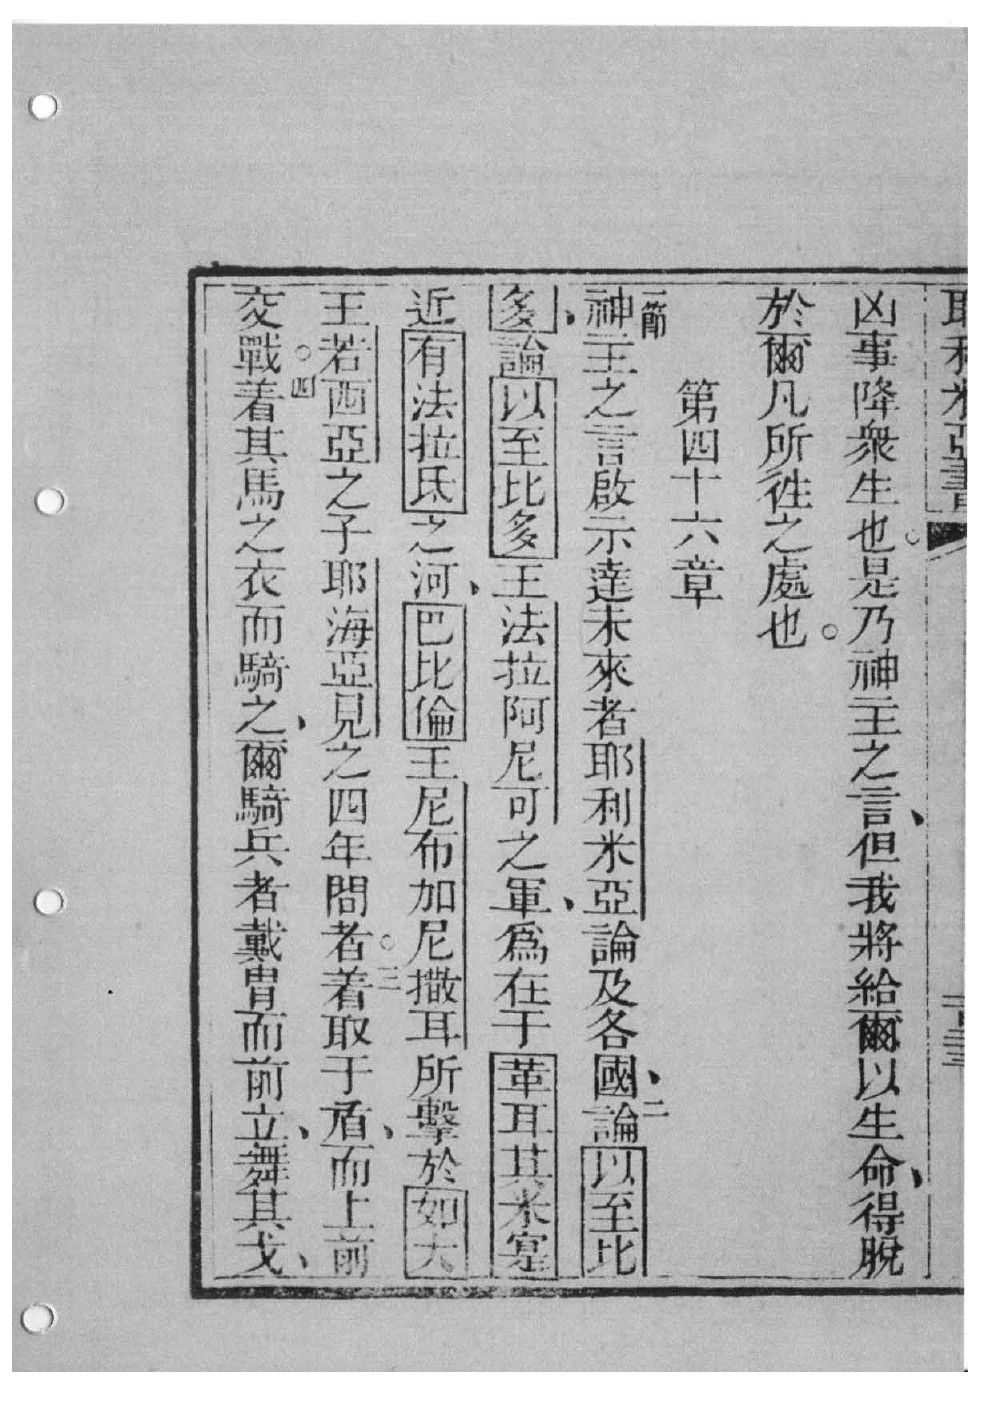 耶利米亞書
凶事降衆生也。是乃神主之言、但我將給爾以生命、得脫
於爾凡所徃之處也。
第四十六章
一節神主之言啟示達未來者耶利米亞論及各國、二論以至比
多、論以至比多王法拉阿尼可之軍、爲在于革耳其米寔
近有法拉氐之河、巴比倫王尼布加尼撒耳所擊於如大
王若西亞之子耶海亞見之四年間者。三着取于盾、而上前
交戰。四着其馬之衣而騎之、爾騎兵者戴冑而前立、舞其戈、